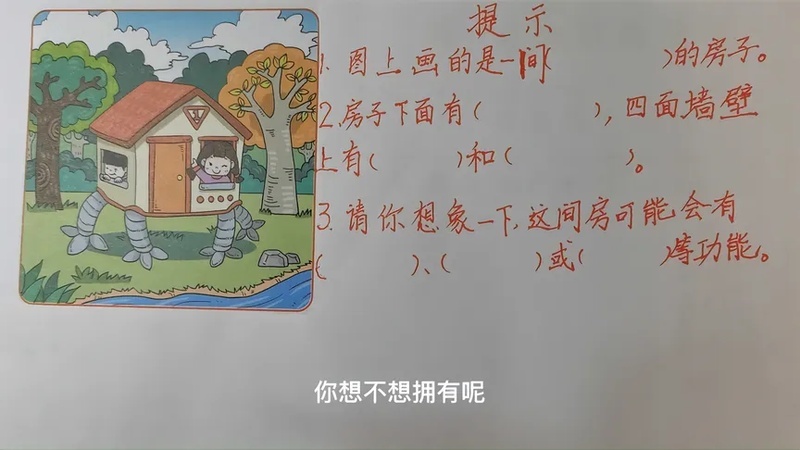 提示
1.图上画的是一间(　　　　)的房子。
2.房子下面有(　　　　),四面墙壁
上有(　　　)和(　　　　)。
3.请你想象一下,这间房可能会有
(　　　)、(　　　)或(　　　)等功能。
你想不想拥有呢